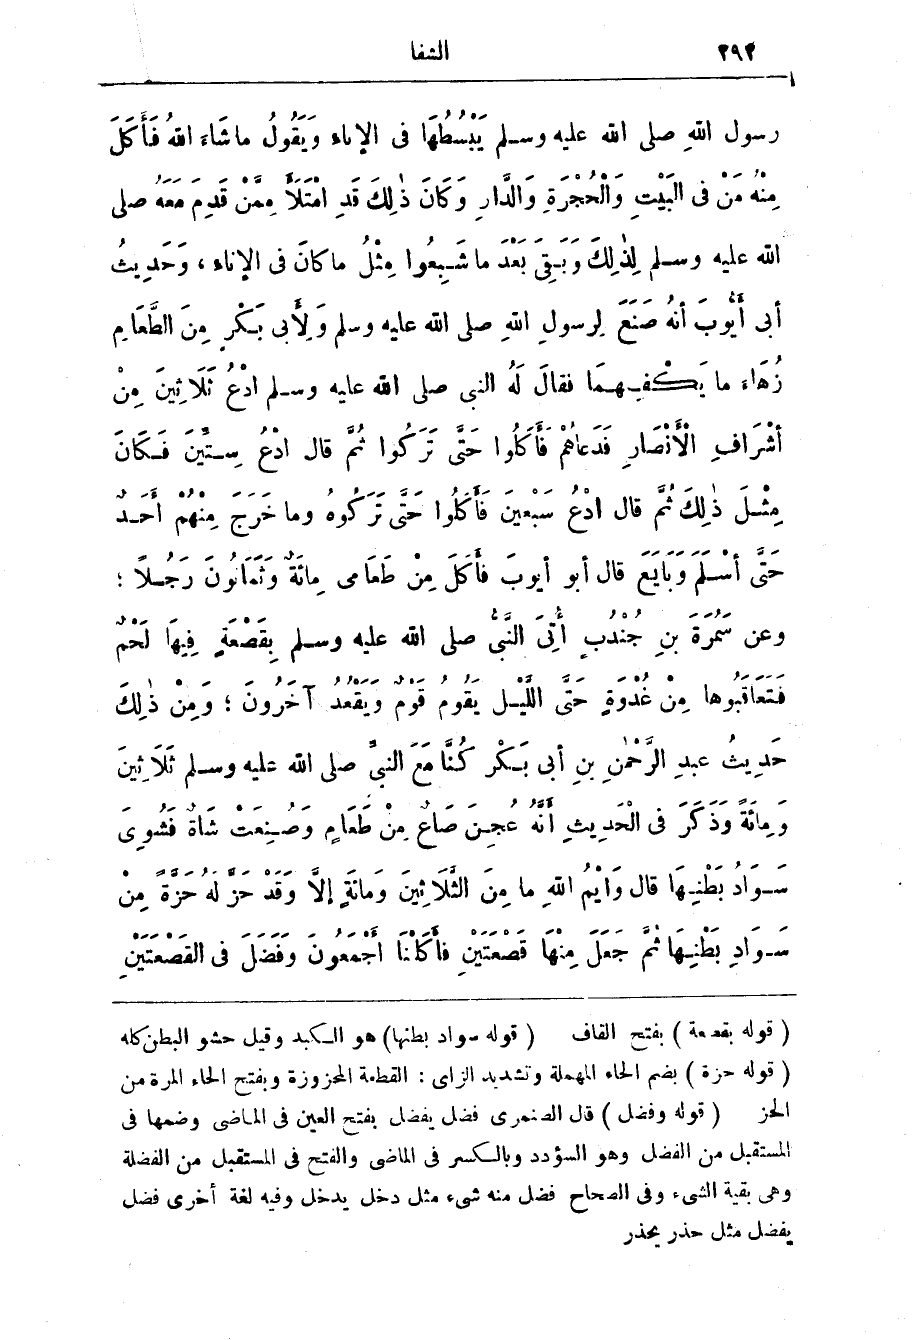 ٢٩٢ الشفا
رسول اللهِ صلى الله عليه وسلم يَبْسُطُهَا فى الإناء وَيَقُولُ ما شَاءَ اللهُ فَأَكَلَ
مِنْهُ مَنْ فى البَيْتِ وَالْحُجْرَةِ وَالدَّارِ وَكَانَ ذٰلِكَ قَدِ امْتَلَأَ مِمَّنْ قَدِمَ مَعَهُ صلى
الله عليه وسلم لِذٰلِكَ وَبَقِىَ بَعْدَ ما شَبِعُوا مِثْلُ ما كانَ فى الإناء ، وَحَدِيثُ
أبى أَيُّوبَ أنهُ صَنَعَ لِرسولِ اللهِ صلى الله عليه وسلم وَلِأَبى بَكْرٍ مِنَ الطَّعَامِ
زُهَاءَ ما يَكْفِيهِمَا فقالَ لَهُ النبى صلى الله عليه وسلم ادْعُ ثَلَاثِينَ مِنْ
أشْرَافِ الْأَنْصَارِ فَدَعاهُمْ فَأَكَلُوا حَتَّى تَرَكُوا ثُمَّ قال ادْعُ سِتِّينَ فَكَانَ
مِثْلَ ذٰلِكَ ثُمَّ قال ادْعُ سَبْعينَ فَأَكَلُوا حَتَّى تَرَكُوهُ وما خَرَجَ مِنْهُمْ أَحَدٌ
حَتَّى أسْلَمَ وَبَايَعَ قال أبو أيوبَ فأَكَلَ مِنْ طَعَامِى مِائَةٌ وَثَمَانُونَ رَجُلاً ؛
وعن سَمُرَةَ بنِ جُنْدُبٍ أُتِىَ النَّبىُّ صلى الله عليه وسلم بِقَصْعَةٍ فِيهَا لَحْمٌ
فَتَعاقَبُوها مِنْ غُدْوَةٍ حَتَّى اللَّيْلِ يَقُومُ قَوْمٌ وَيَقْعُدُ آخَرُونَ ؛ وَمِنْ ذٰلِكَ
حَدِيثُ عبدِ الرَّحْمٰنِ بنِ أبى بَكْر كُنَّا مَعَ النبىِّ صلى الله عليه وسلم ثَلَاثِينَ
وَمِائَةً وَذَكَرَ فى الْحَدِيثِ أَنَّهُ عُجِنَ صَاعٌ مِنْ طَعَامٍ وَصُنِعَتْ شَاةٌ فَشُوِىَ
سَوَادُ بَطْنِهَا قال وَايْمُ اللهِ ما مِنَ الثَّلَاثِينَ وَمائَةٍ إلَّا وَقَدْ حَزَّ لَهُ حَزَّةً مِنْ
سَوَادِ بَطْنِهَا ثُمَّ جَعَلَ مِنْهَا قَصْعَتَيْنِ فأَكَلْنَا أَجْمَعُونَ وَفَضَلَ فى القَصْعَتَيْنِ
( قوله بقصعة ) بفتح القاف ( قوله سواد بطنها) هو الكبد وقيل حشو البطن كله
( قوله حزة ) بضم الحاء المهملة وتشديد الزاى : القطعة المحزوزة وبفتح الحاء المرة من
الحز ( قوله وفضل ) قال الصنمرى فضل يفضل بفتح العين فى الماضى وضمها فى
المستقبل من الفضل وهو السؤدد وبالكسر فى الماضى والفتح فى المستقبل من الفضلة
وهى بقية الشىء وفى الصحاح فضل منه شىء مثل دخل يدخل وفيه لغة أخرى فضل
يفضل مثل حذر يحذر